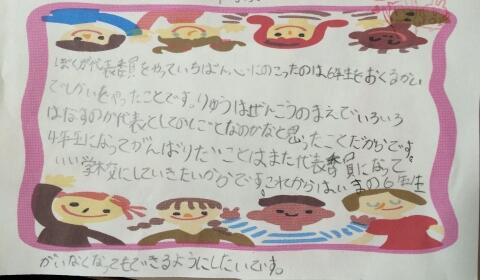 ぼくが代表委員をやっていちばん心にのこったのは6年生をおくるかい
でしかいをやったことです。りゆうはぜんこうのまえでいろいろ
はなすのが代表としてのしごとなのかなと思ったことだからです。
4年生になってがんばりたいことはまた代表委員になって
いい学校にしていきたいからです。これからはいまの6年生
がいなくなってもできるようにしたいです。